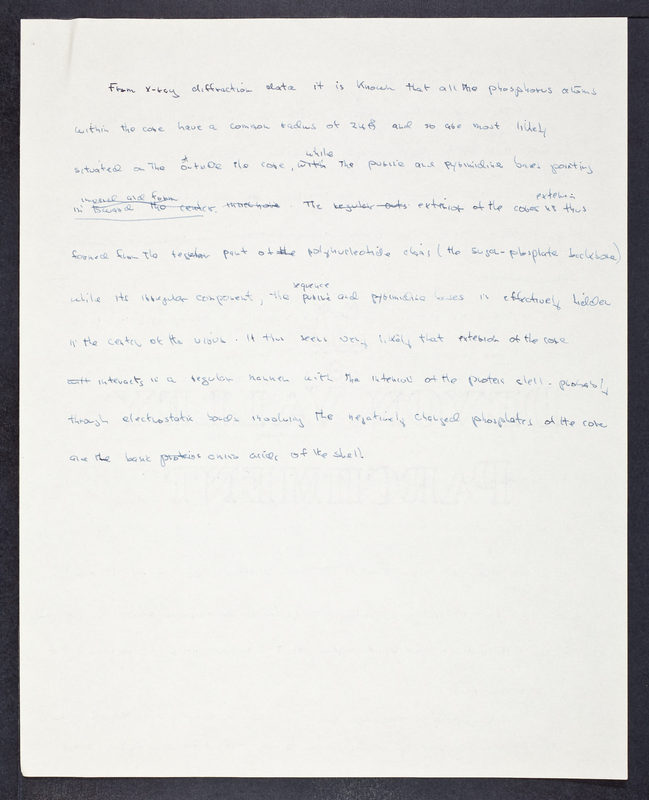 From x-ray diffraction data it is known that all the phosphorus atoms
within the core have a common radius of 24Å and so are most likely
situated on the outside the core, with while the purine and pyrimidine bases pointing
inward and form
in toward the center. The regular outs exterior of the cores is thus exterior
formed from the regular part of the polynucleotide chains (the sugar-phosphate backbone)
while its irregular component, the purine sequence and pyrimidine bases is effectively hidden
in the center of the virus. It thus seems very likely that exterior of the core
interacts in a regular manner with the interior of the protein shell. probably
through electrostatic bonds involving the negatively charged phosphates of the core
and the basic proteins amino acids of the shell.